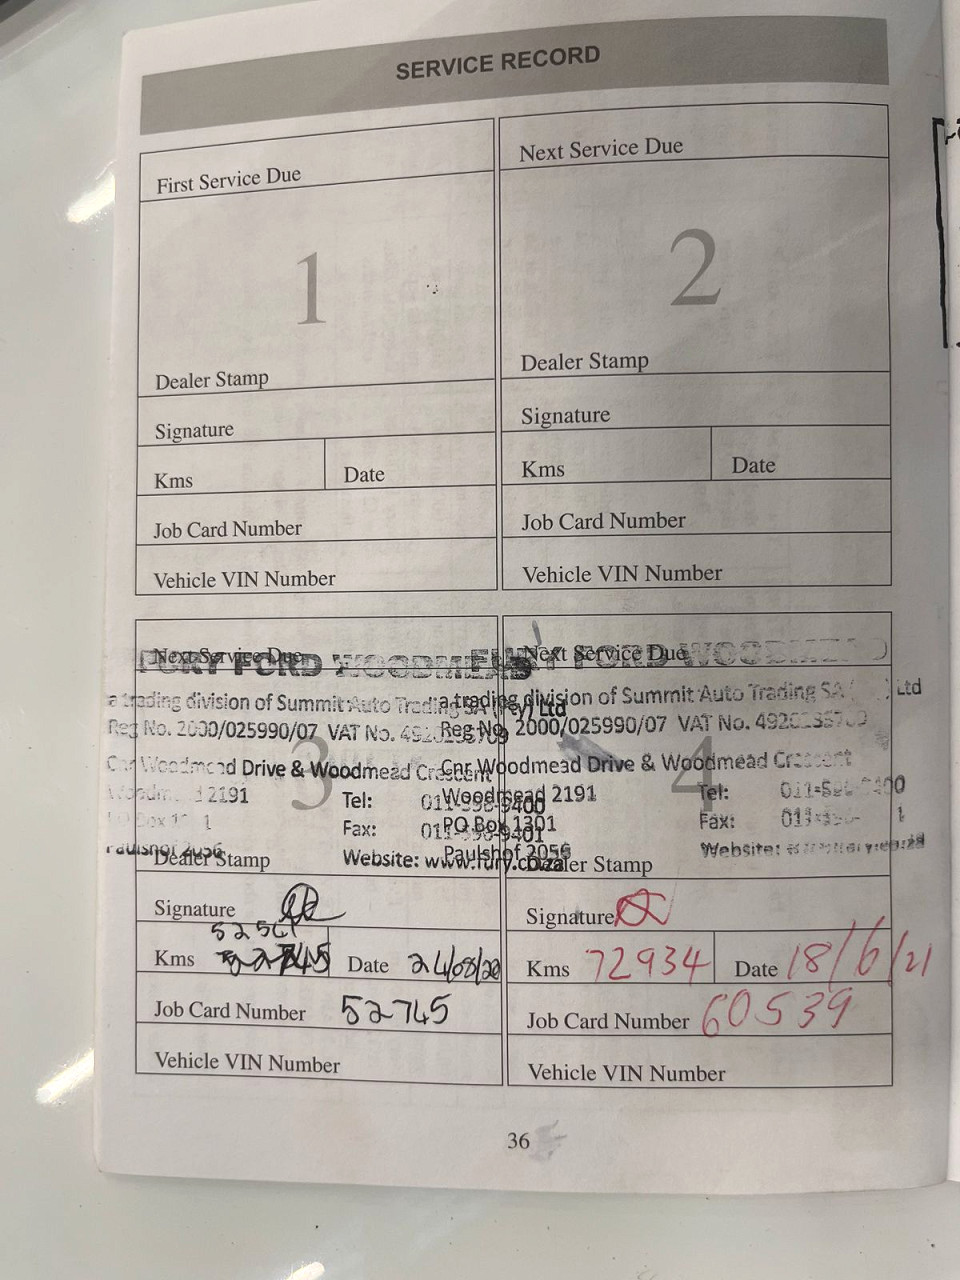 SERVICE RECORD
First Service Due
1
Dealer Stamp
Signature
Kms Date
Job Card Number
Vehicle VIN Number
Next Service Due
2
Dealer Stamp
Signature
Kms Date
Job Card Number
Vehicle VIN Number
Next Service Due
FURY FORD WOODMEAD
a trading division of Summit Auto Trading SA (Pty) Ltd
Reg No. 2000/025990/07 VAT No.
3
Cnr Woodmead Drive & Woodmead Crescent
2191
Tel:
Fax:
Paulshof 2056
Website: www.fury.co.za
Dealer Stamp
Signature
52561
Kms 52745 Date 24/08/20
Job Card Number 52745
Vehicle VIN Number
Next Service Due
FORD WOODMEAD
a trading division of Summit Auto Trading SA Ltd
Reg No. 2000/025990/07 VAT No.
4
Cnr Woodmead Drive & Woodmead Crescent
Woodmead 2191 Tel:
PO Box 1301 Fax:
Paulshof 2056 Website:
Dealer Stamp
Signature
Kms 72934 Date 18/6/21
Job Card Number 60539
Vehicle VIN Number
36